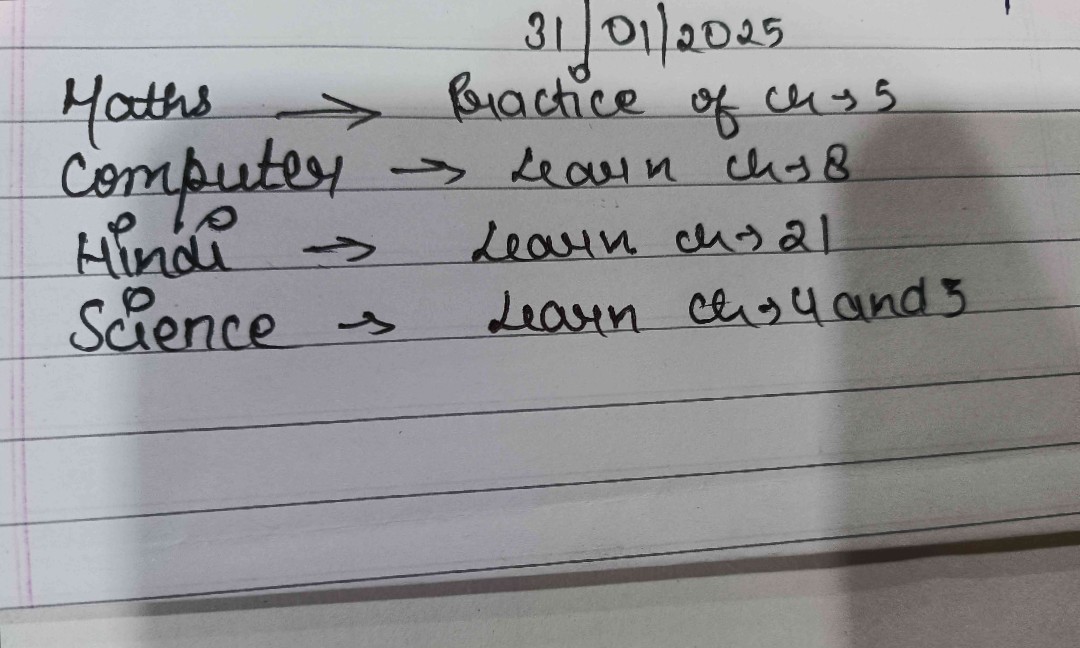 31/01/2025
Maths → Practice of ch → 5
Computer → Learn ch → 8
Hindi → Learn ch → 21
Science → Learn ch → 4 and 5